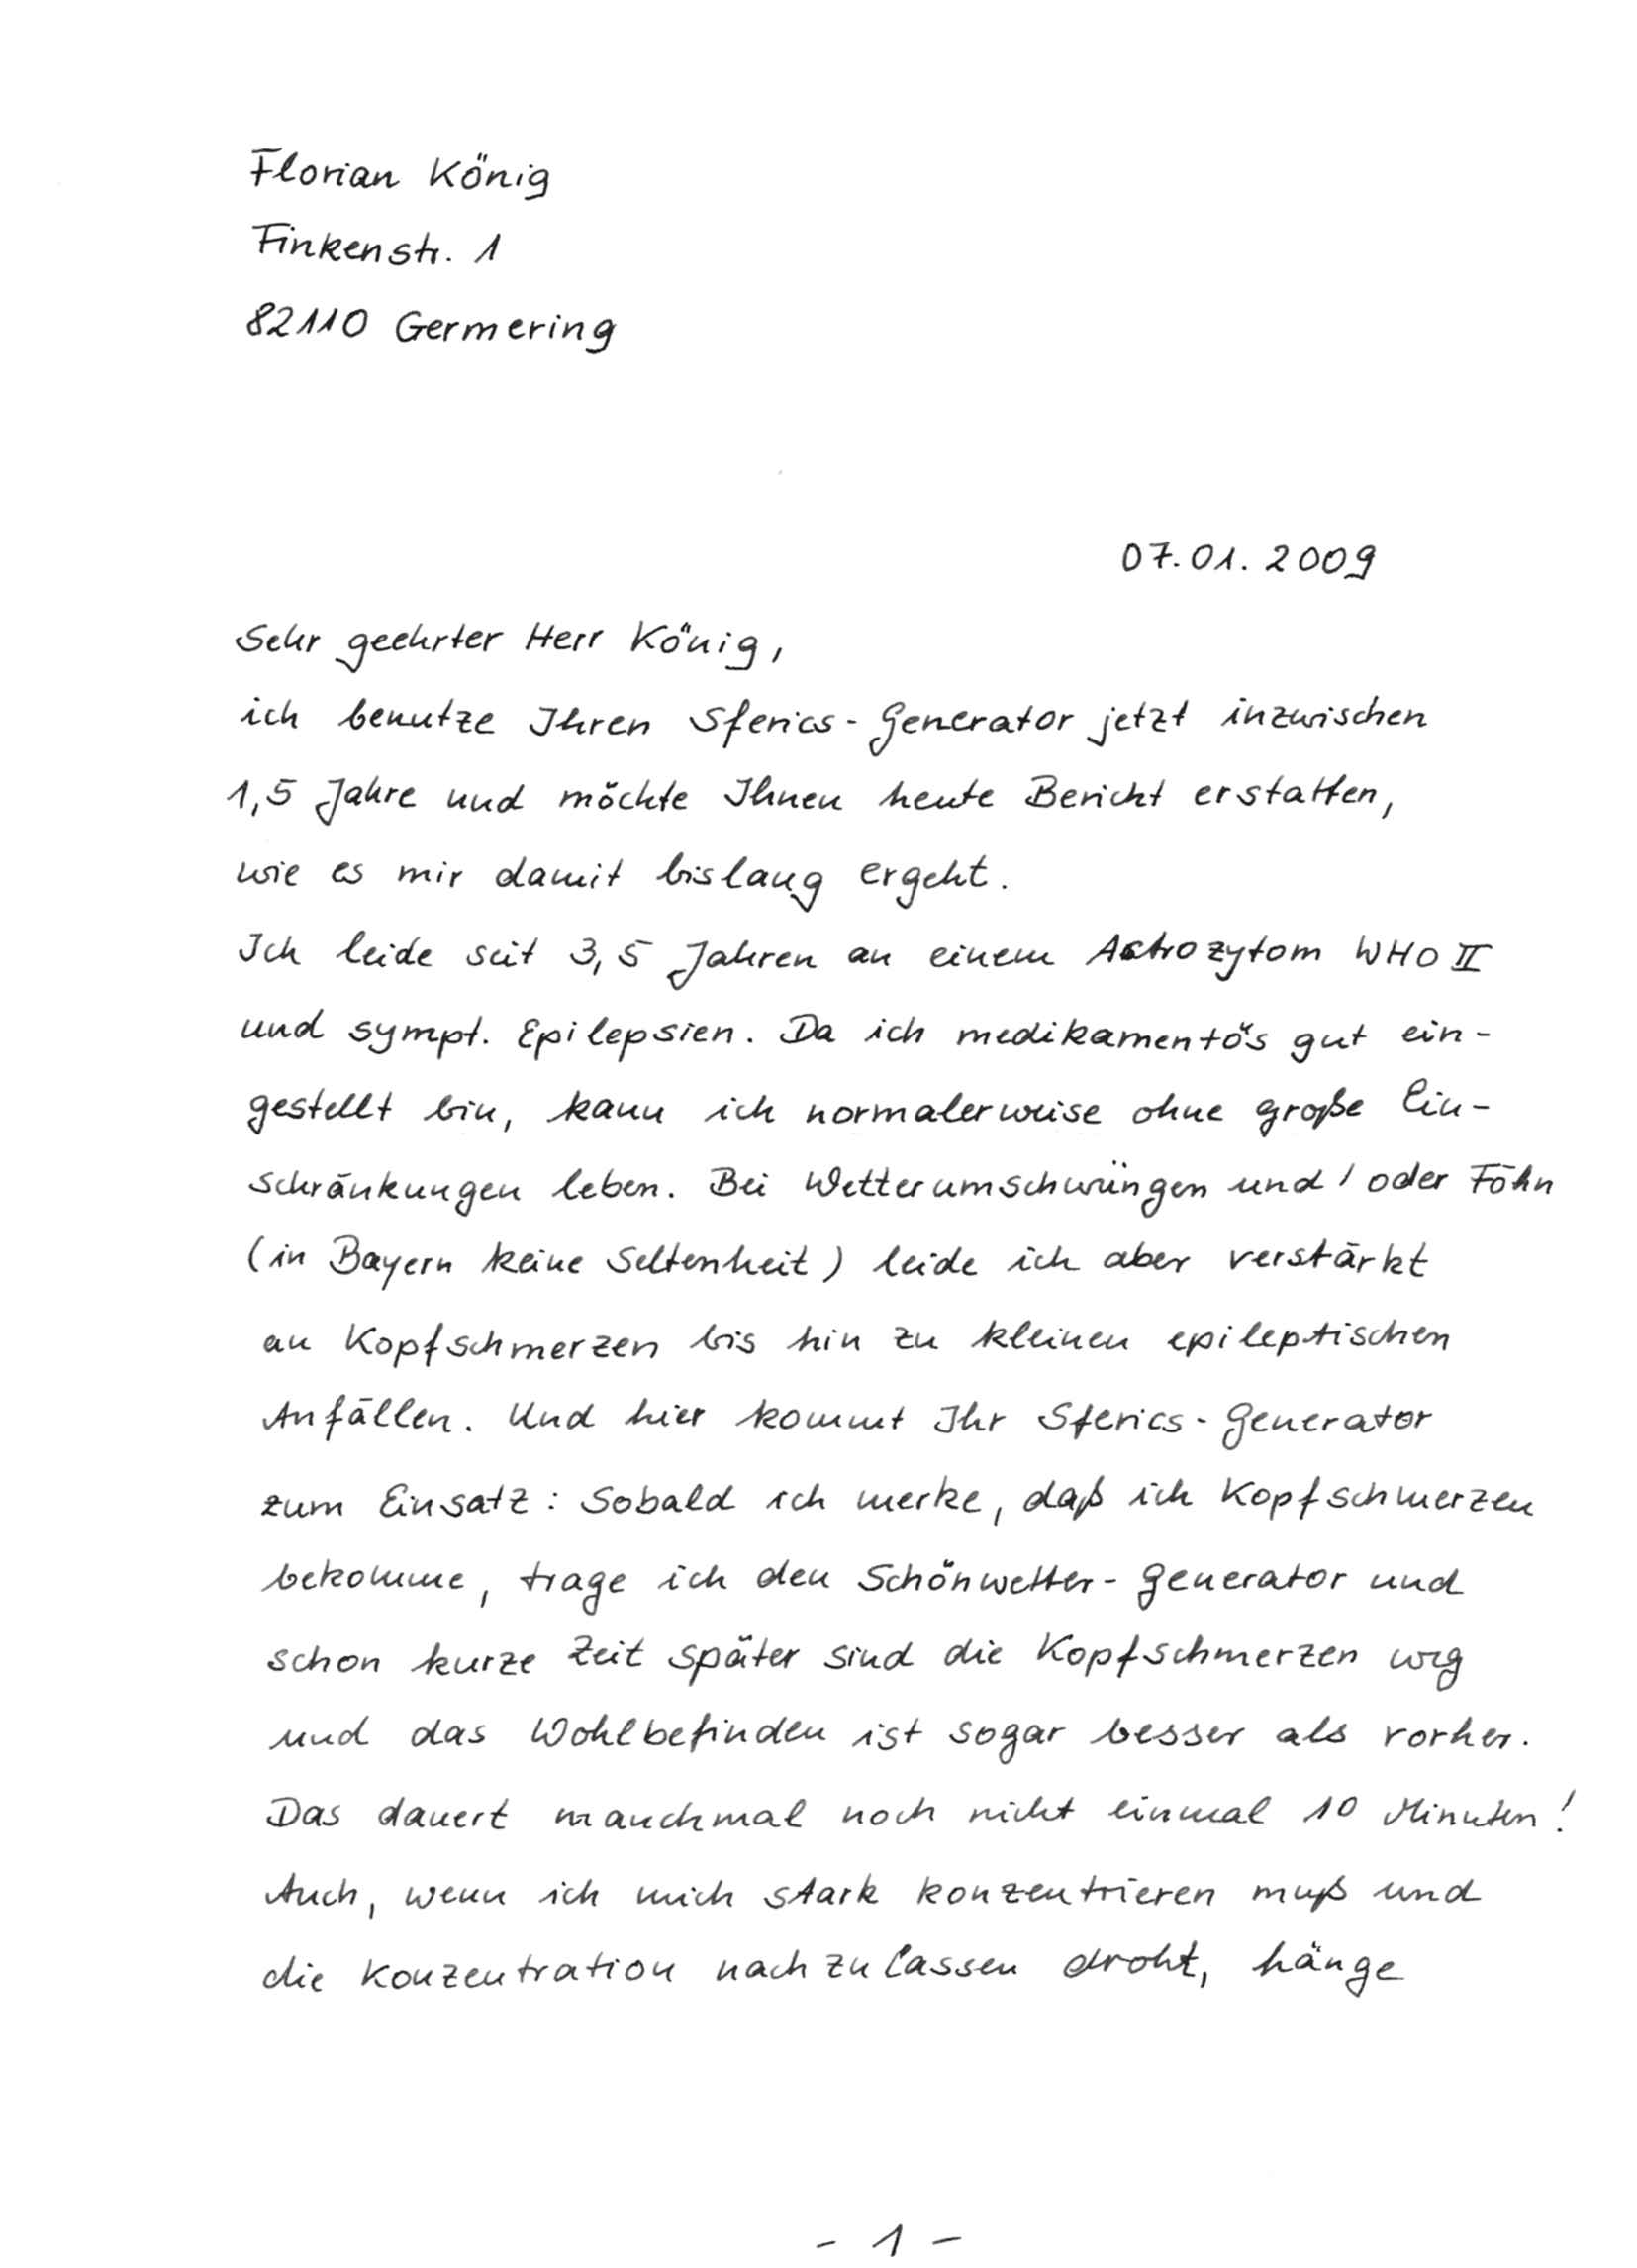 Florian König
Finkenstr. 1
82110 Germering
07.01.2009
Sehr geehrter Herr König,
ich benutze Ihren Sferics-Generator jetzt inzwischen
1,5 Jahre und möchte Ihnen heute Bericht erstatten,
wie es mir damit bislang ergeht.
Ich leide seit 3,5 Jahren an einem Astrozytom WHO II
und sympt. Epilepsien. Da ich medikamentös gut ein-
gestellt bin, kann ich normalerweise ohne große Ein-
schränkungen leben. Bei Wetterumschwüngen und / oder Föhn
(in Bayern keine Seltenheit) leide ich aber verstärkt
an Kopfschmerzen bis hin zu kleinen epileptischen
Anfällen. Und hier kommt Ihr Sferics-Generator
zum Einsatz: Sobald ich merke, daß ich Kopfschmerzen
bekomme, trage ich den Schönwetter-Generator und
schon kurze Zeit später sind die Kopfschmerzen weg
und das Wohlbefinden ist sogar besser als vorher.
Das dauert manchmal noch nicht einmal 10 Minuten!
Auch, wenn ich mich stark konzentrieren muß und
die Konzentration nachzulassen droht, hänge
- 1 -